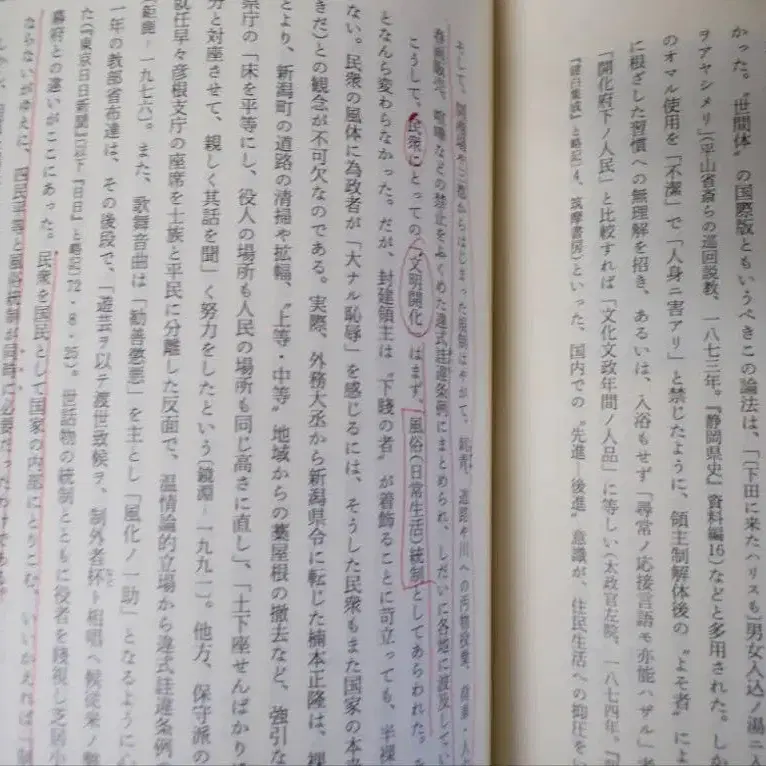 かった。“世間体”の国際版ともいうべきこの論法は、「〔下田に来たハリスも〕男女入込ノ湯ニ入
ヲアヤシメリ」(平山省斎らの巡回説教、一八七三年。『静岡県史』資料編16)などと多用された。しか
のオマル使用を「不潔」で「人身ニ害アリ」と禁じたように、領主制解体後の“よそ者”によ
に根ざした習慣への無理解を招き、あるいは、入浴もせず「尋常ノ応接言語モ亦能ハザル」者
「開化府下ノ人民」と比較すれば「文化文政年間ノ人品」に等しい(太政官左院、一八七四年。
『建白集成』と略記)4、筑摩書房)といった、国内での“先進―後進”意識が、住民生活への抑圧を
そして、開港場や三府からはじまった規制はやがて、刺青、道路や川への汚物投棄、
春画販売、喧嘩などの禁止をふくめた違式詿違条例にまとめられ、しだいに各地に波及してい
こうして、民衆にとっての「文明開化」はまず、風俗(日常生活)統制としてあらわれた。
となんら変わらなかった。だが、封建領主は“下賤の者”が着飾ることに苛立っても、半裸
ない。民衆の風体に為政者が「大ナル恥辱」を感じるには、そうした民衆もまた国家の本
きだ)との観念が不可欠なのである。実際、外務大丞から新潟県令に転じた楠本正隆は、裸
とより、新潟町の道路の清掃や拡幅、“上等・中等”地域からの藁屋根の撤去など、強引な
県庁の「床を平等にし、役人の場所も人民の場所も同じ高さに直し」、「土下座せんばかり
分と対座させて、親しく其話を聞」く努力をしたという(鏡淵―一九九一)。他方、保守派の
就任早々彦根支庁の座席を士族と平民に分離した反面で、温情論的立場から違式詿違条例
鹿―一九七六)。また、歌舞音曲は「勧善懲悪」を主とし「風化ノ一助」となるように心
一年の教部省布達は、その後段で、「遊芸ヲ以テ渡世致候ヲ、制外者杯ト相唱ヘ候従来ノ弊
た(『東京日日新聞』(以下『日日』と略記)72・8・25)。世話物の統制とともに役者を賤視し芝居小
幕府との違いがここにあった。民衆を国民として国家の内部にとりこむ、いいかえれば
ならないがゆえに、四民平等と風俗統制が同時に必要だったわけである。